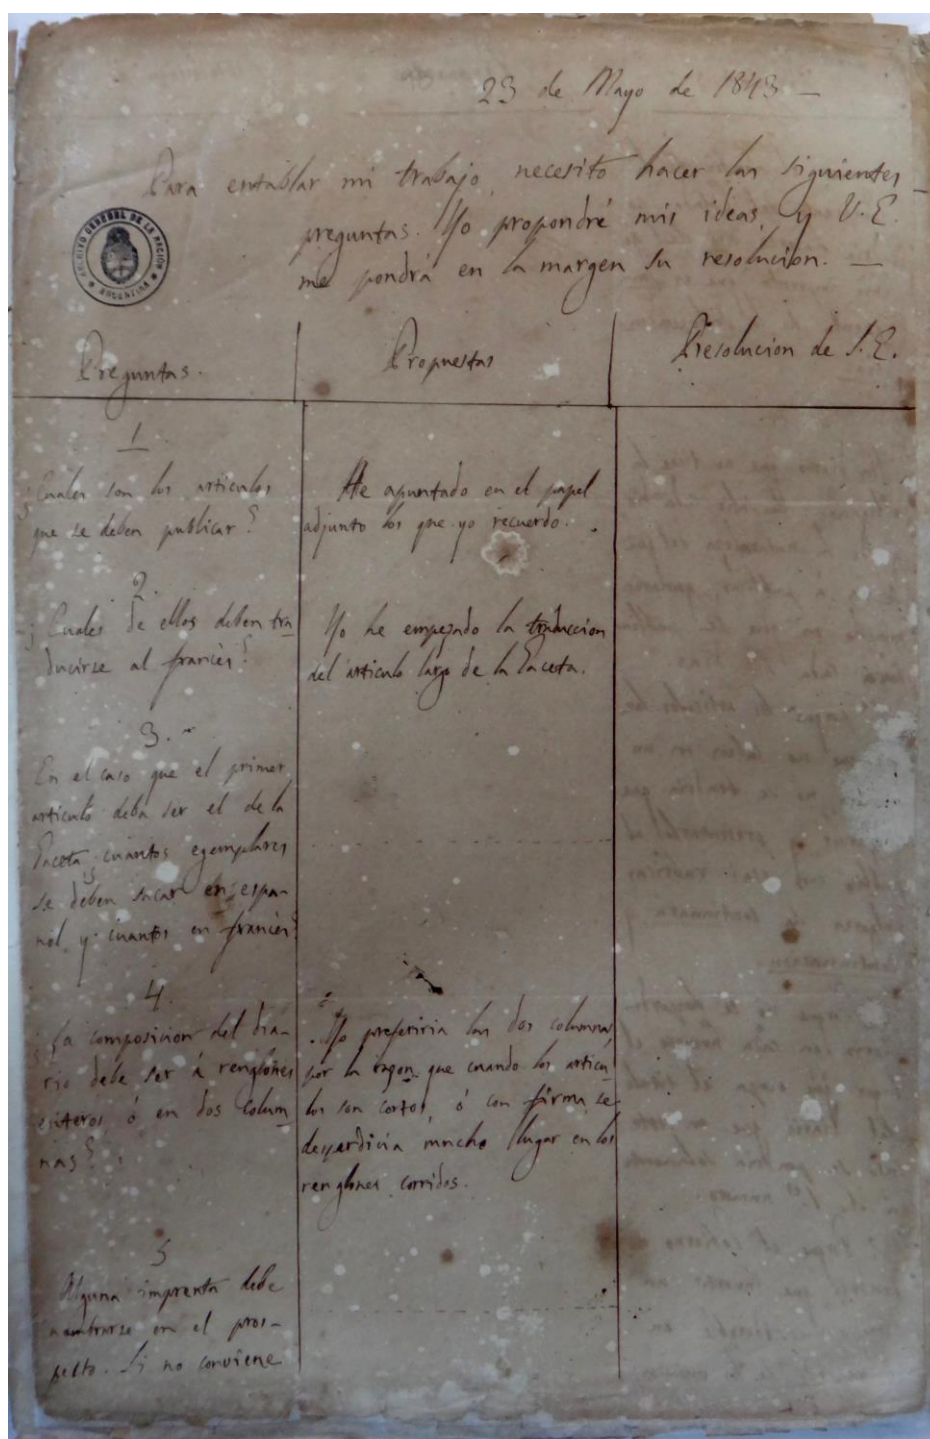 23 de Mayo de 1843 —
Para entablar mi trabajo, necesito hacer las siguientes
preguntas. Yo propondré mis ideas, y V. E.
me pondrá en la margen su resolucion. —
ARCHIVO GENERAL DE LA NACIÓN
ARGENTINA
Preguntas.
Propuestas
Resolucion de S. E.
1
¿Cuales son los articulos
que se deben publicar?
He apuntado en el papel
adjunto los que yo recuerdo.
2.
¿Cuales de ellos deben tra-
ducirse al francés?
Yo he empezado la traduccion
del articulo largo de la Gaceta.
3.
En el caso que el primer
articulo deba ser el de la
Gaceta ¿cuantos egemplares
se deben sacar en espa-
nol, y cuantos en francés?
4.
¿La composicion del dia-
rio debe ser á renglones
enteros, ó en dos colum-
nas?
Yo preferiria las dos columnas
por la razon que cuando los articu-
los son cortos, ó con firma, se
desperdicia mucho lugar en los
renglones corridos.
5
Alguna imprenta debe
nombrarse en el pros-
pecto. Si no conviene